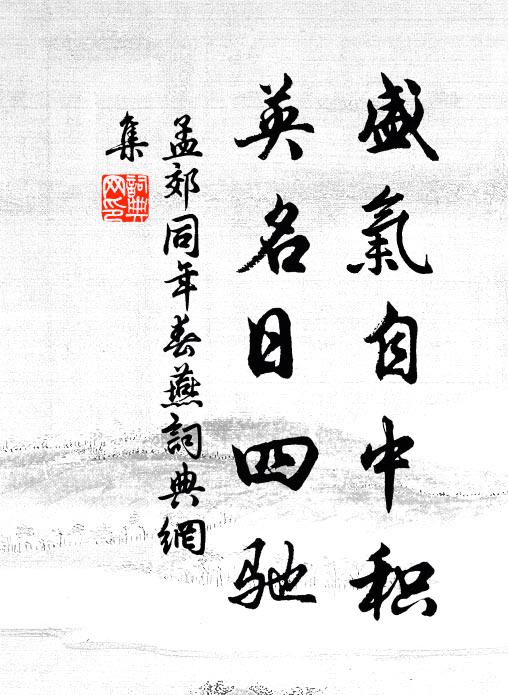 盛氣自中积
英名日四驰
孟郊同年春燕詞典網
集
詞典網印